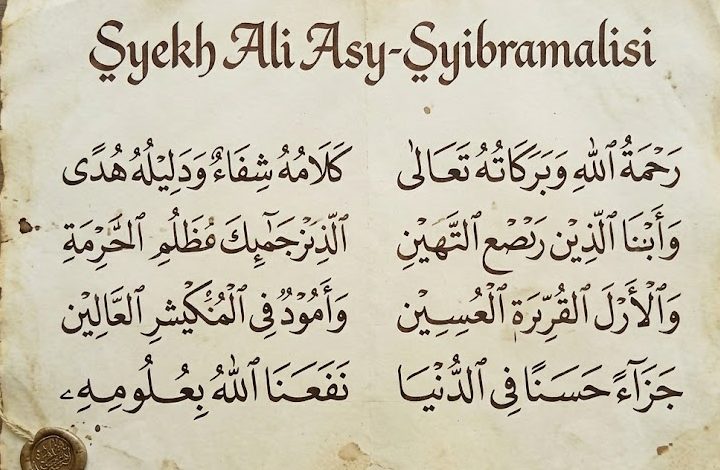 Syekh Ali Asy-Syibramalisi
رَحْمَةُ ٱللهِ وَبَرَكَاتُهُ تَعَالىٰ كَلَامُهُ شِفَاءٌ وَدَلِيْلُهُ هُدًى
وَأَبْنَا ٱلَّذِيْن رَبْصْع ٱلتَّهَيْنِ ٱلَّذِىْ مُظَلُمِ ٱلْحَرِمَةِ
وَٱلْأَرْلَ ٱلقُرِّبَرَةِ ٱلْعُسِسِيْن وَأَمُوْدُ فِى ٱلْمُنْكِيْشرِ ٱلعَّالِيْن
جَزَآءً حَسَنًا فِى ٱلدُّنْيَا نَفَعَنَا ٱللهُ بِعُلُومِهِ